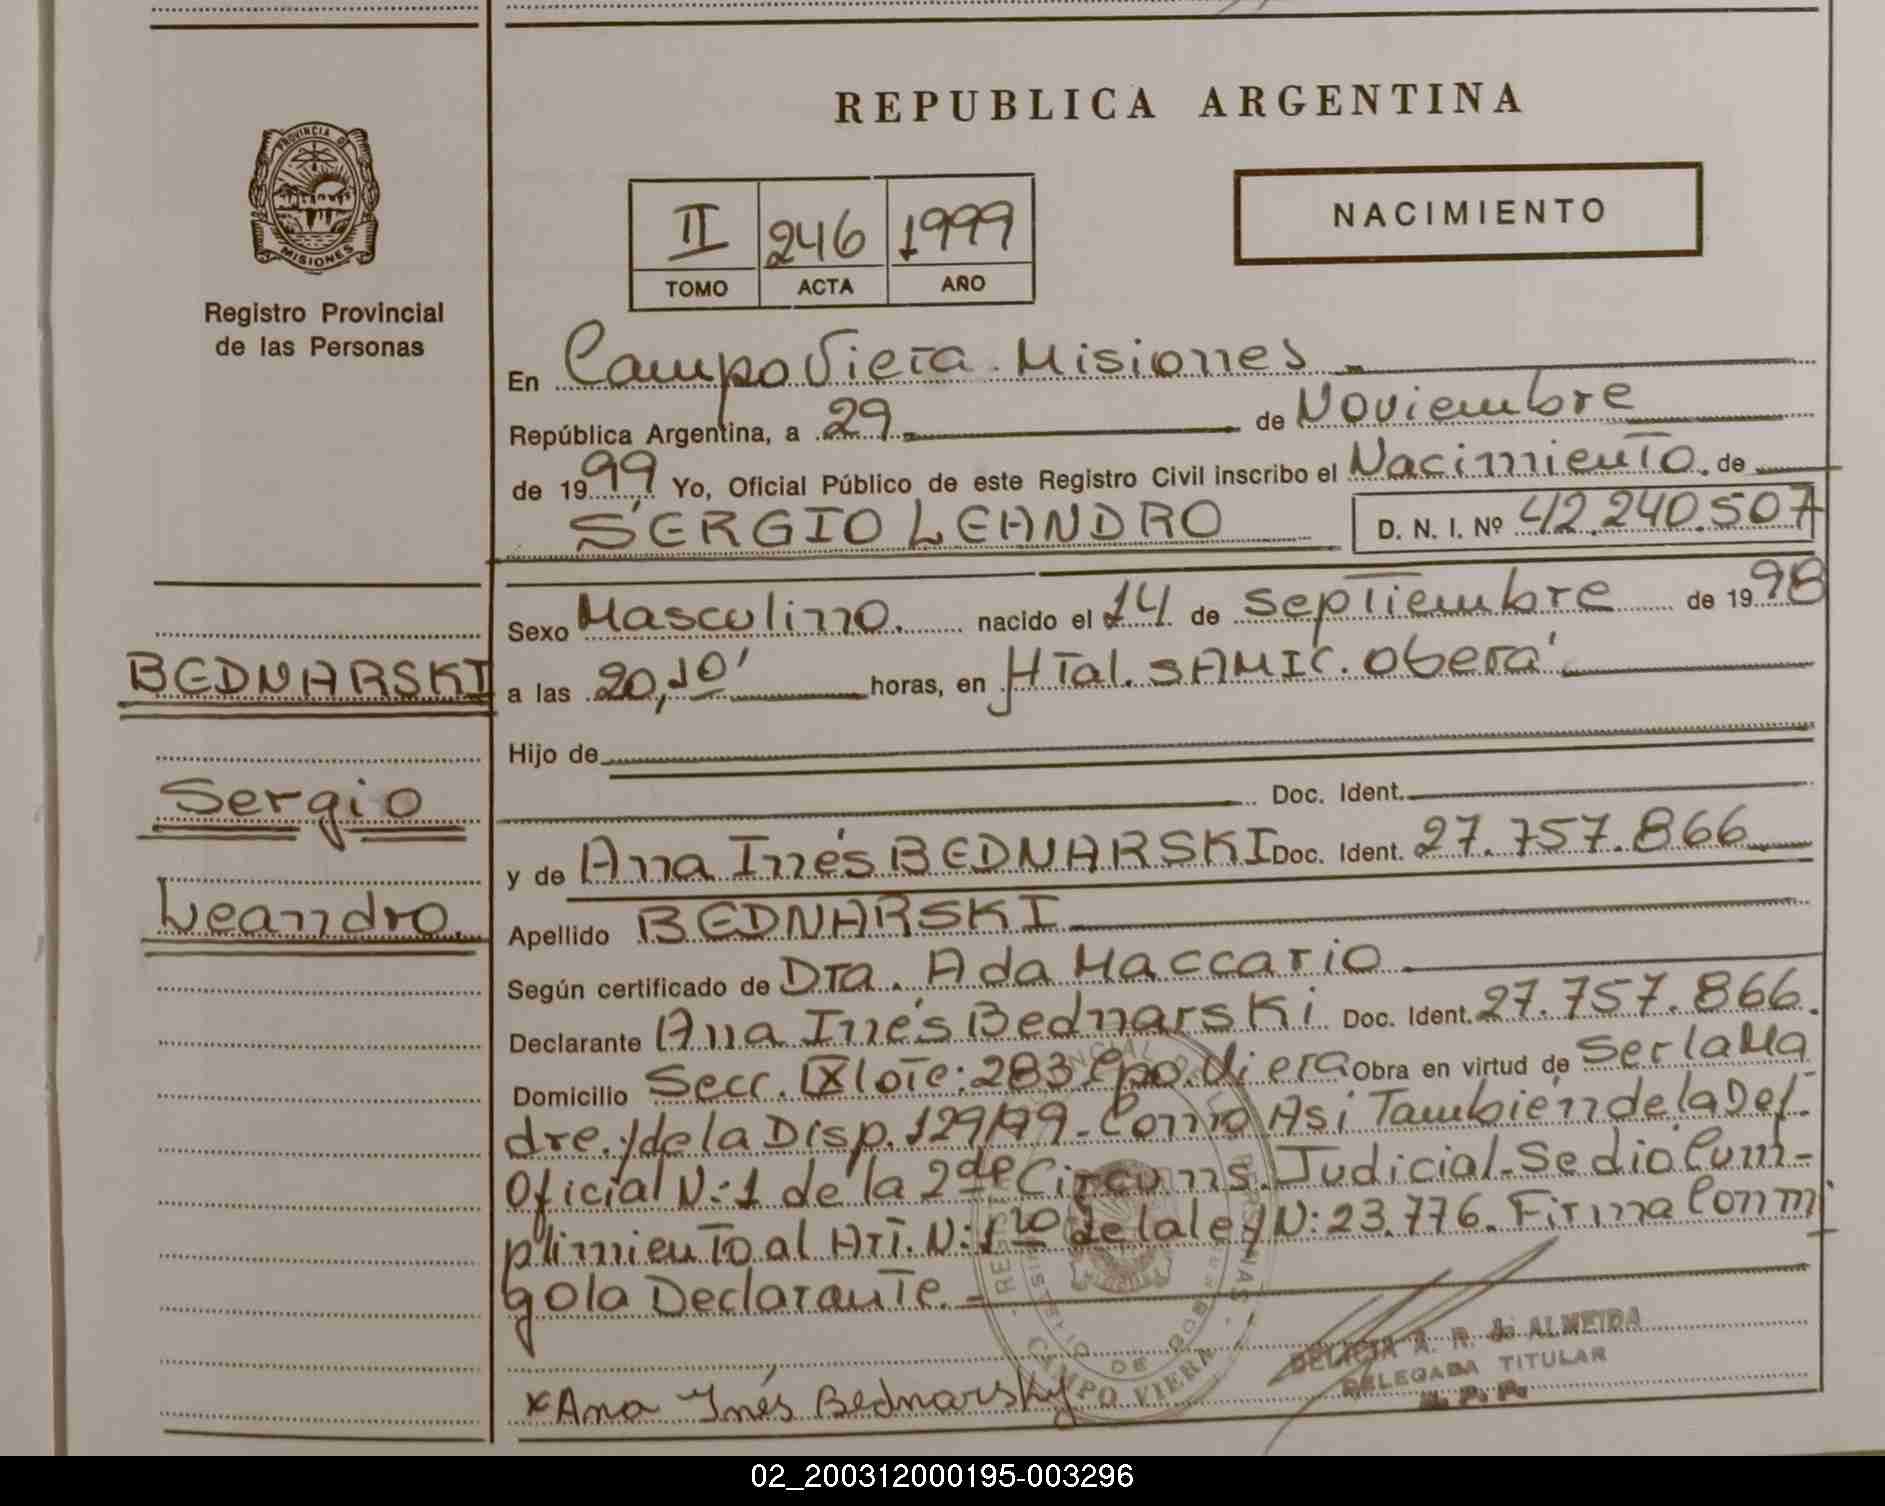 REPUBLICA ARGENTINA
PROVINCIA DE
MISIONES
Registro Provincial
de las Personas
II 246 1999
TOMO ACTA AÑO
NACIMIENTO
En Campo Viera. Misiones
República Argentina, a 29 de Noviembre
de 1999 Yo, Oficial Público de este Registro Civil inscribo el Nacimiento. de
SERGIO LEANDRO D. N. I. Nº 42.240.507
Sexo Masculino. nacido el 14 de septiembre de 1998
BEDNARSKI
a las 20,10' horas, en HTal. SAMIC. Oberá
Hijo de
Doc. Ident.
Sergio
y de Ana Inés BEDNARSKI Doc. Ident. 27.757.866
Leandro.
Apellido BEDNARSKI
Según certificado de Dra. Ada Maccario
Declarante Ana Inés Bednarski Doc. Ident. 27.757.866.
Domicilio Secc. IX lote: 283 Cpo. Viera Obra en virtud de Ser la Ma
dre. y de la Disp. 129/99. Como Asi También de la Def.
Oficial N:1 de la 2da Circuns. Judicial. Se dió Cum-
plimiento al Art. N:1ro de la ley N: 23.776. Firma Conmi
go la Declarante.-
CAMPO VIERA
DELICIA A. R. de ALMEIDA
DELEGADA TITULAR
R. P. P.
x Ana Inés Bednarsky
02_200312000195-003296